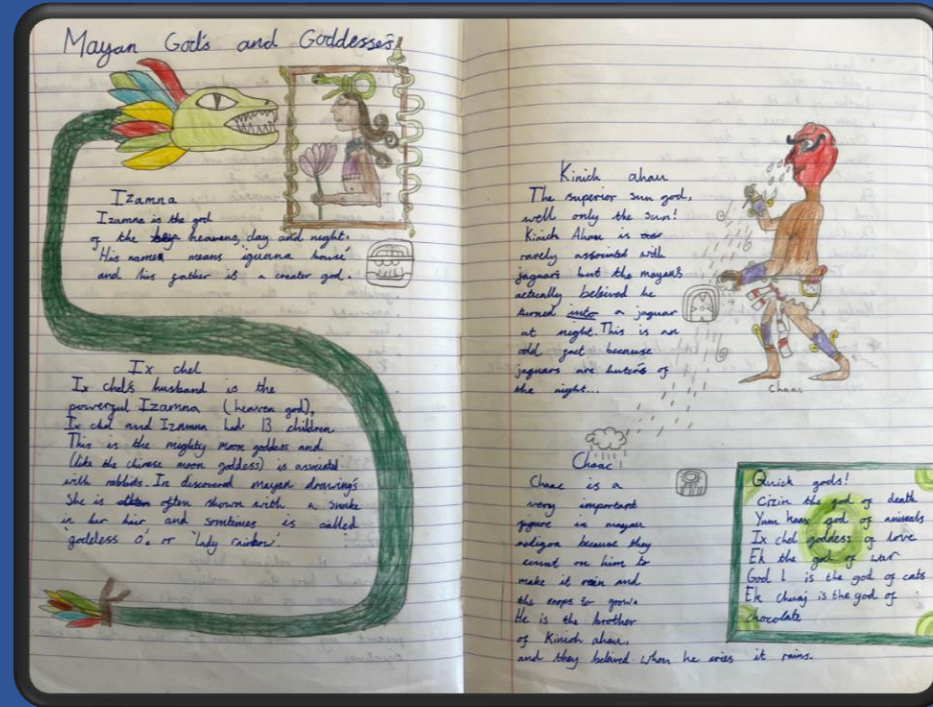 Mayan God's and Goddesses
Izamna
Izamna is the god
of the heavens, day and night.
His name means 'iguana house'
and his father is a creator god.
Ix chel
Ix chel's husband is the
powerful Izamna (heaven god),
Ix chel and Izamna had 13 children
This is the mighty moon goddess and
(like the chinese moon goddess) is associated
with rabbits. In discovered mayan drawing's
She is often shown with a snake
in her hair and somtimes is called
goddess O'. or 'lady rainbow'.
Kinich ahau
The superior sun god,
well only the sun!
Kinich Ahau is
rarely associated with
jaguars but the mayan's
actually beleived he
turned into a jaguar
at night. This is an
odd fact because
jaguars are of
the night...
Chaac
Chaac
Chaac is a
very important
figure in mayan
religon because they
count on him to
make it rain and
the crops to grow.
He is the brother
of Kinich ahau,
and they beleved when he cries it rains.
Quick gods!
Cizin the god of death
Yum kaax god of animals
Ix chel goddess of love
Ek the god of war
God L is the god of cats
Ek chuaj is the god of
chocolate